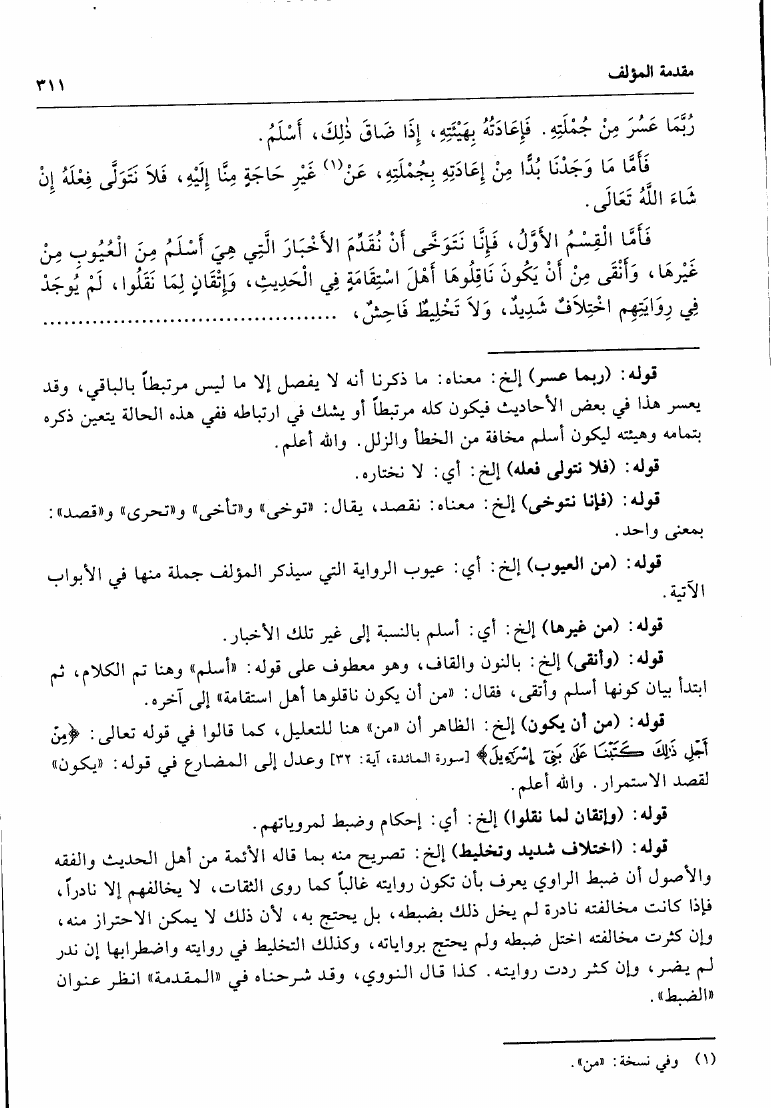 مقدمة المؤلف ٣١١
رُبَّمَا عَسُرَ مِنْ جُمْلَتِهِ. فَإِعَادَتُهُ بِهَيْئَتِهِ، إِذَا ضَاقَ ذٰلِكَ، أَسْلَمُ.
فَأَمَّا مَا وَجَدْنَا بُدًّا مِنْ إِعَادَتِهِ بِجُمْلَتِهِ، عَنْ(١) غَيْرِ حَاجَةٍ مِنَّا إِلَيْهِ، فَلاَ نَتَوَلَّى فِعْلَهُ إِنْ
شَاءَ اللَّهُ تَعَالَى.
فَأَمَّا الْقِسْمُ الأَوَّلُ، فَإِنَّا نَتَوَخَّى أَنْ نُقَدِّمَ الأَخْبَارَ الَّتِي هِيَ أَسْلَمُ مِنَ الْعُيُوبِ مِنْ
غَيْرِهَا، وَأَنْقَى مِنْ أَنْ يَكُونَ نَاقِلُوهَا أَهْلَ اسْتِقَامَةٍ فِي الْحَدِيثِ، وَإِتْقَانٍ لِمَا نَقَلُوا، لَمْ يُوجَدْ
فِي رِوَايَتِهِم اخْتِلاَفٌ شَدِيدٌ، وَلاَ تَخْلِيطٌ فَاحِشٌ، ........................................
قوله: (ربما عسر) إلخ: معناه: ما ذكرنا أنه لا يفصل إلا ما ليس مرتبطاً بالباقي، وقد
يعسر هذا في بعض الأحاديث فيكون كله مرتبطاً أو يشك في ارتباطه ففي هذه الحالة يتعين ذكره
بتمامه وهيئته ليكون أسلم مخافة من الخطأ والزلل. والله أعلم.
قوله: (فلا نتولى فعله) إلخ: أي: لا نختاره.
قوله: (فإنا نتوخى) إلخ: معناه: نقصد، يقال: «توخى» و«تأخى» و«تحرى» و«قصد»:
بمعنى واحد.
قوله: (من العيوب) إلخ: أي: عيوب الرواية التي سيذكر المؤلف جملة منها في الأبواب
الآتية.
قوله: (من غيرها) إلخ: أي: أسلم بالنسبة إلى غير تلك الأخبار.
قوله: (وأنقى) إلخ: بالنون والقاف، وهو معطوف على قوله: «أسلم» وهنا تم الكلام، ثم
ابتدأ بيان كونها أسلم وأنقى، فقال: «من أن يكون ناقلوها أهل استقامة» إلى آخره.
قوله: (من أن يكون) إلخ: الظاهر أن «من» هنا للتعليل، كما قالوا في قوله تعالى: ﴿مِنْ
أَجْلِ ذَٰلِكَ كَتَبْنَا عَلَىٰ بَنِىٓ إِسْرَٰٓءِيلَ﴾ [سورة المائدة، آية: ٣٢] وعدل إلى المضارع في قوله: «يكون»
لقصد الاستمرار. والله أعلم.
قوله: (وإتقان لما نقلوا) إلخ: أي: إحكام وضبط لمروياتهم.
قوله: (اختلاف شديد وتخليط) إلخ: تصريح منه بما قاله الأئمة من أهل الحديث والفقه
والأصول أن ضبط الراوي يعرف بأن تكون روايته غالباً كما روى الثقات، لا يخالفهم إلا نادراً،
فإذا كانت مخالفته نادرة لم يخل ذلك بضبطه، بل يحتج به، لأن ذلك لا يمكن الاحتراز منه،
وإن كثرت مخالفته اختل ضبطه ولم يحتج برواياته، وكذلك التخليط في روايته واضطرابها إن ندر
لم يضر، وإن كثر ردت روايته. كذا قال النووي، وقد شرحناه في «المقدمة» انظر عنوان
«الضبط».
(١) وفي نسخة: «من».